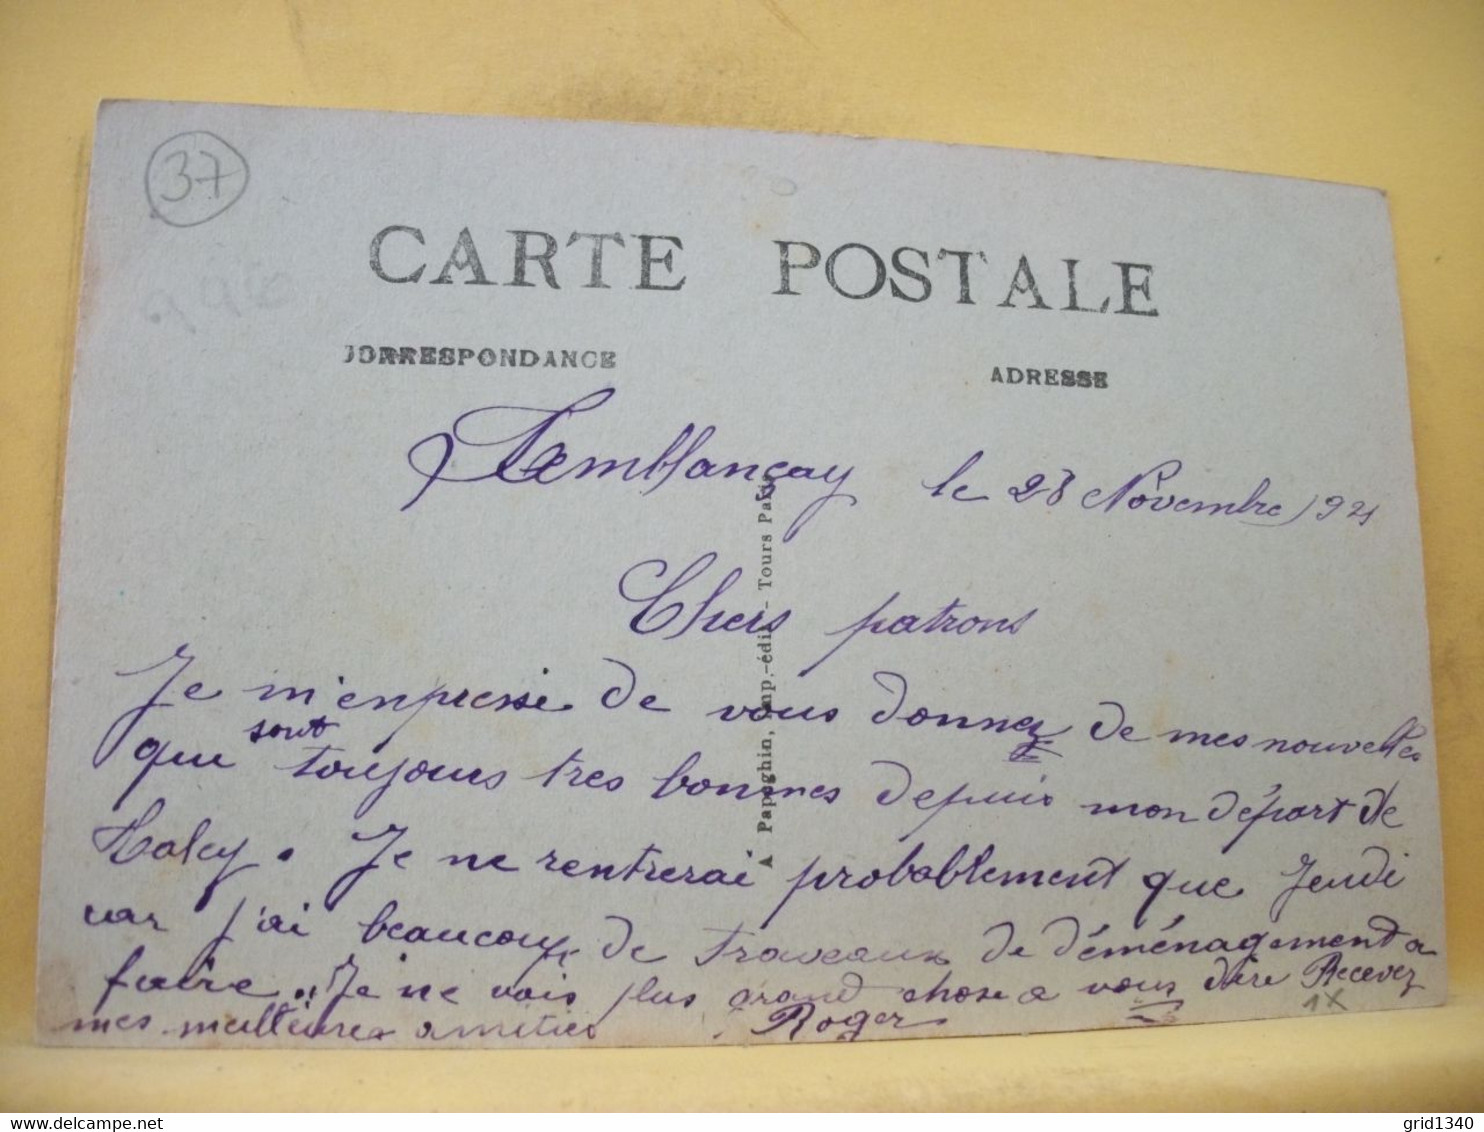 37
CARTE POSTALE
CORRESPONDANCE
ADRESSE
Semblançay le 28 Novembre 1921
Chers patrons
Je m'enpresse de vous donnez de mes nouvelles
qui sont toujours tres bonnes depuis mon départ de
Je ne rentrerai probablement que Jeudi
car j'ai beaucoup de traveaux de déménagement a
faire. Je ne vois plus grand chose a vous dire Recevez
mes meilleures amitiés Roger
1x
A Papeghin, imp.-édit. - Tours Paris
grid1340
delcampe.net